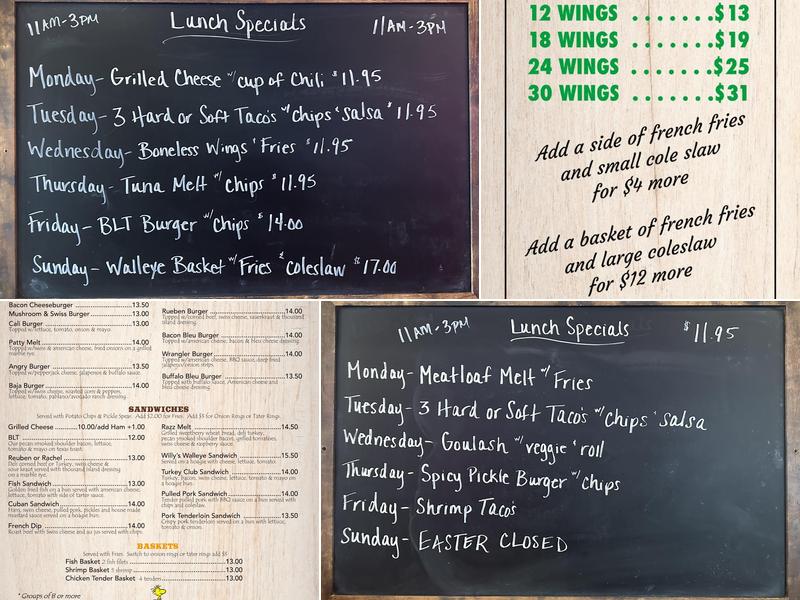 11AM-3PM Lunch Specials 11AM-3PM
Monday- Grilled Cheese w/ cup of Chili $11.95
Tuesday- 3 Hard or Soft Taco's w/ chips & salsa $11.95
Wednesday- Boneless Wings & Fries $11.95
Thursday- Tuna Melt w/ chips $11.95
Friday- BLT Burger w/ chips $14.00
Sunday- Walleye Basket w/ Fries & coleslaw $17.00
12 WINGS .......$13
18 WINGS .......$19
24 WINGS .......$25
30 WINGS .......$31
Add a side of french fries
and small cole slaw
for $4 more
Add a basket of french fries
and large coleslaw
for $12 more
Bacon Cheeseburger 13.50
Mushroom & Swiss Burger 13.00
Cali Burger 13.00
Topped w/lettuce, tomato, onion & mayo.
Patty Melt 14.00
Topped w/swiss & american cheese, fried onions on a grilled
marble rye.
Angry Burger 13.50
Topped w/pepperjack cheese, jalapenos & buffalo sauce.
Baja Burger 14.00
Rueben Burger 14.00
Topped w/corned beef, swiss cheese, sauerkraut & thousand
island dressing.
Bacon Bleu Burger 14.00
Topped w/american cheese, bacon & bleu cheese dressing.
Wrangler Burger 14.00
Topped w/american cheese, BBQ sauce, deep fried
jalapeno/onion strips.
Buffalo Bleu Burger 13.50
Topped with buffalo sauce, American cheese and
bleu cheese dressing.
SANDWICHES
Served with Potato Chips & Pickle Spear. Add $2.00 for Fries. Add $3 for Onion Rings or Tater Rings.
Grilled Cheese 10.00/add Ham +1.00
BLT 12.00
Our pecan smoked shoulder bacon, lettuce,
tomato & mayo on texas toast.
Reuben or Rachel 13.00
Deli corned beef or Turkey, swiss cheese &
sour kraut served with thousand island dressing
on a marble rye.
Fish Sandwich 13.00
Golden fried fish on a bun served with american cheese,
lettuce, tomato with side of tarter sauce.
Cuban Sandwich 14.00
Ham, swiss cheese, pulled pork, pickles and house made
mustard sauce served on a hoagie bun.
French Dip 14.00
Roast beef with Swiss cheese and au jus served with chips.
Razz Melt 14.50
Grilled sweetberry wheat bread, deli turkey,
pecan smoked shoulder bacon, grilled tomatoes,
swiss cheese & raspberry sauce.
Willy's Walleye Sandwich 15.50
Served on a hoagie with cheese, lettuce, tomato.
Turkey Club Sandwich 14.00
Turkey, bacon, swiss cheese, lettuce, tomato & mayo on
a hoagie bun.
Pulled Pork Sandwich 14.00
Tender pulled pork with BBQ sauce on a bun served with
chips and coleslaw.
Pork Tenderloin Sandwich 13.50
Crispy pork tenderloin served on a bun with lettuce,
tomato & onion.
BASKETS
Served with Fries. Switch to onion rings or tater rings add $5
Fish Basket 2 fish fillets 13.00
Shrimp Basket 5 shrimp 13.00
Chicken Tender Basket 4 tenders 13.00
* Groups of 8 or more
11AM-3PM Lunch Specials $11.95
Monday- Meatloaf Melt w/ Fries
Tuesday- 3 Hard or Soft Taco's w/ chips & salsa
Wednesday- Goulash w/ veggie & roll
Thursday- Spicy Pickle Burger w/ chips
Friday- Shrimp Taco's
Sunday- EASTER CLOSED